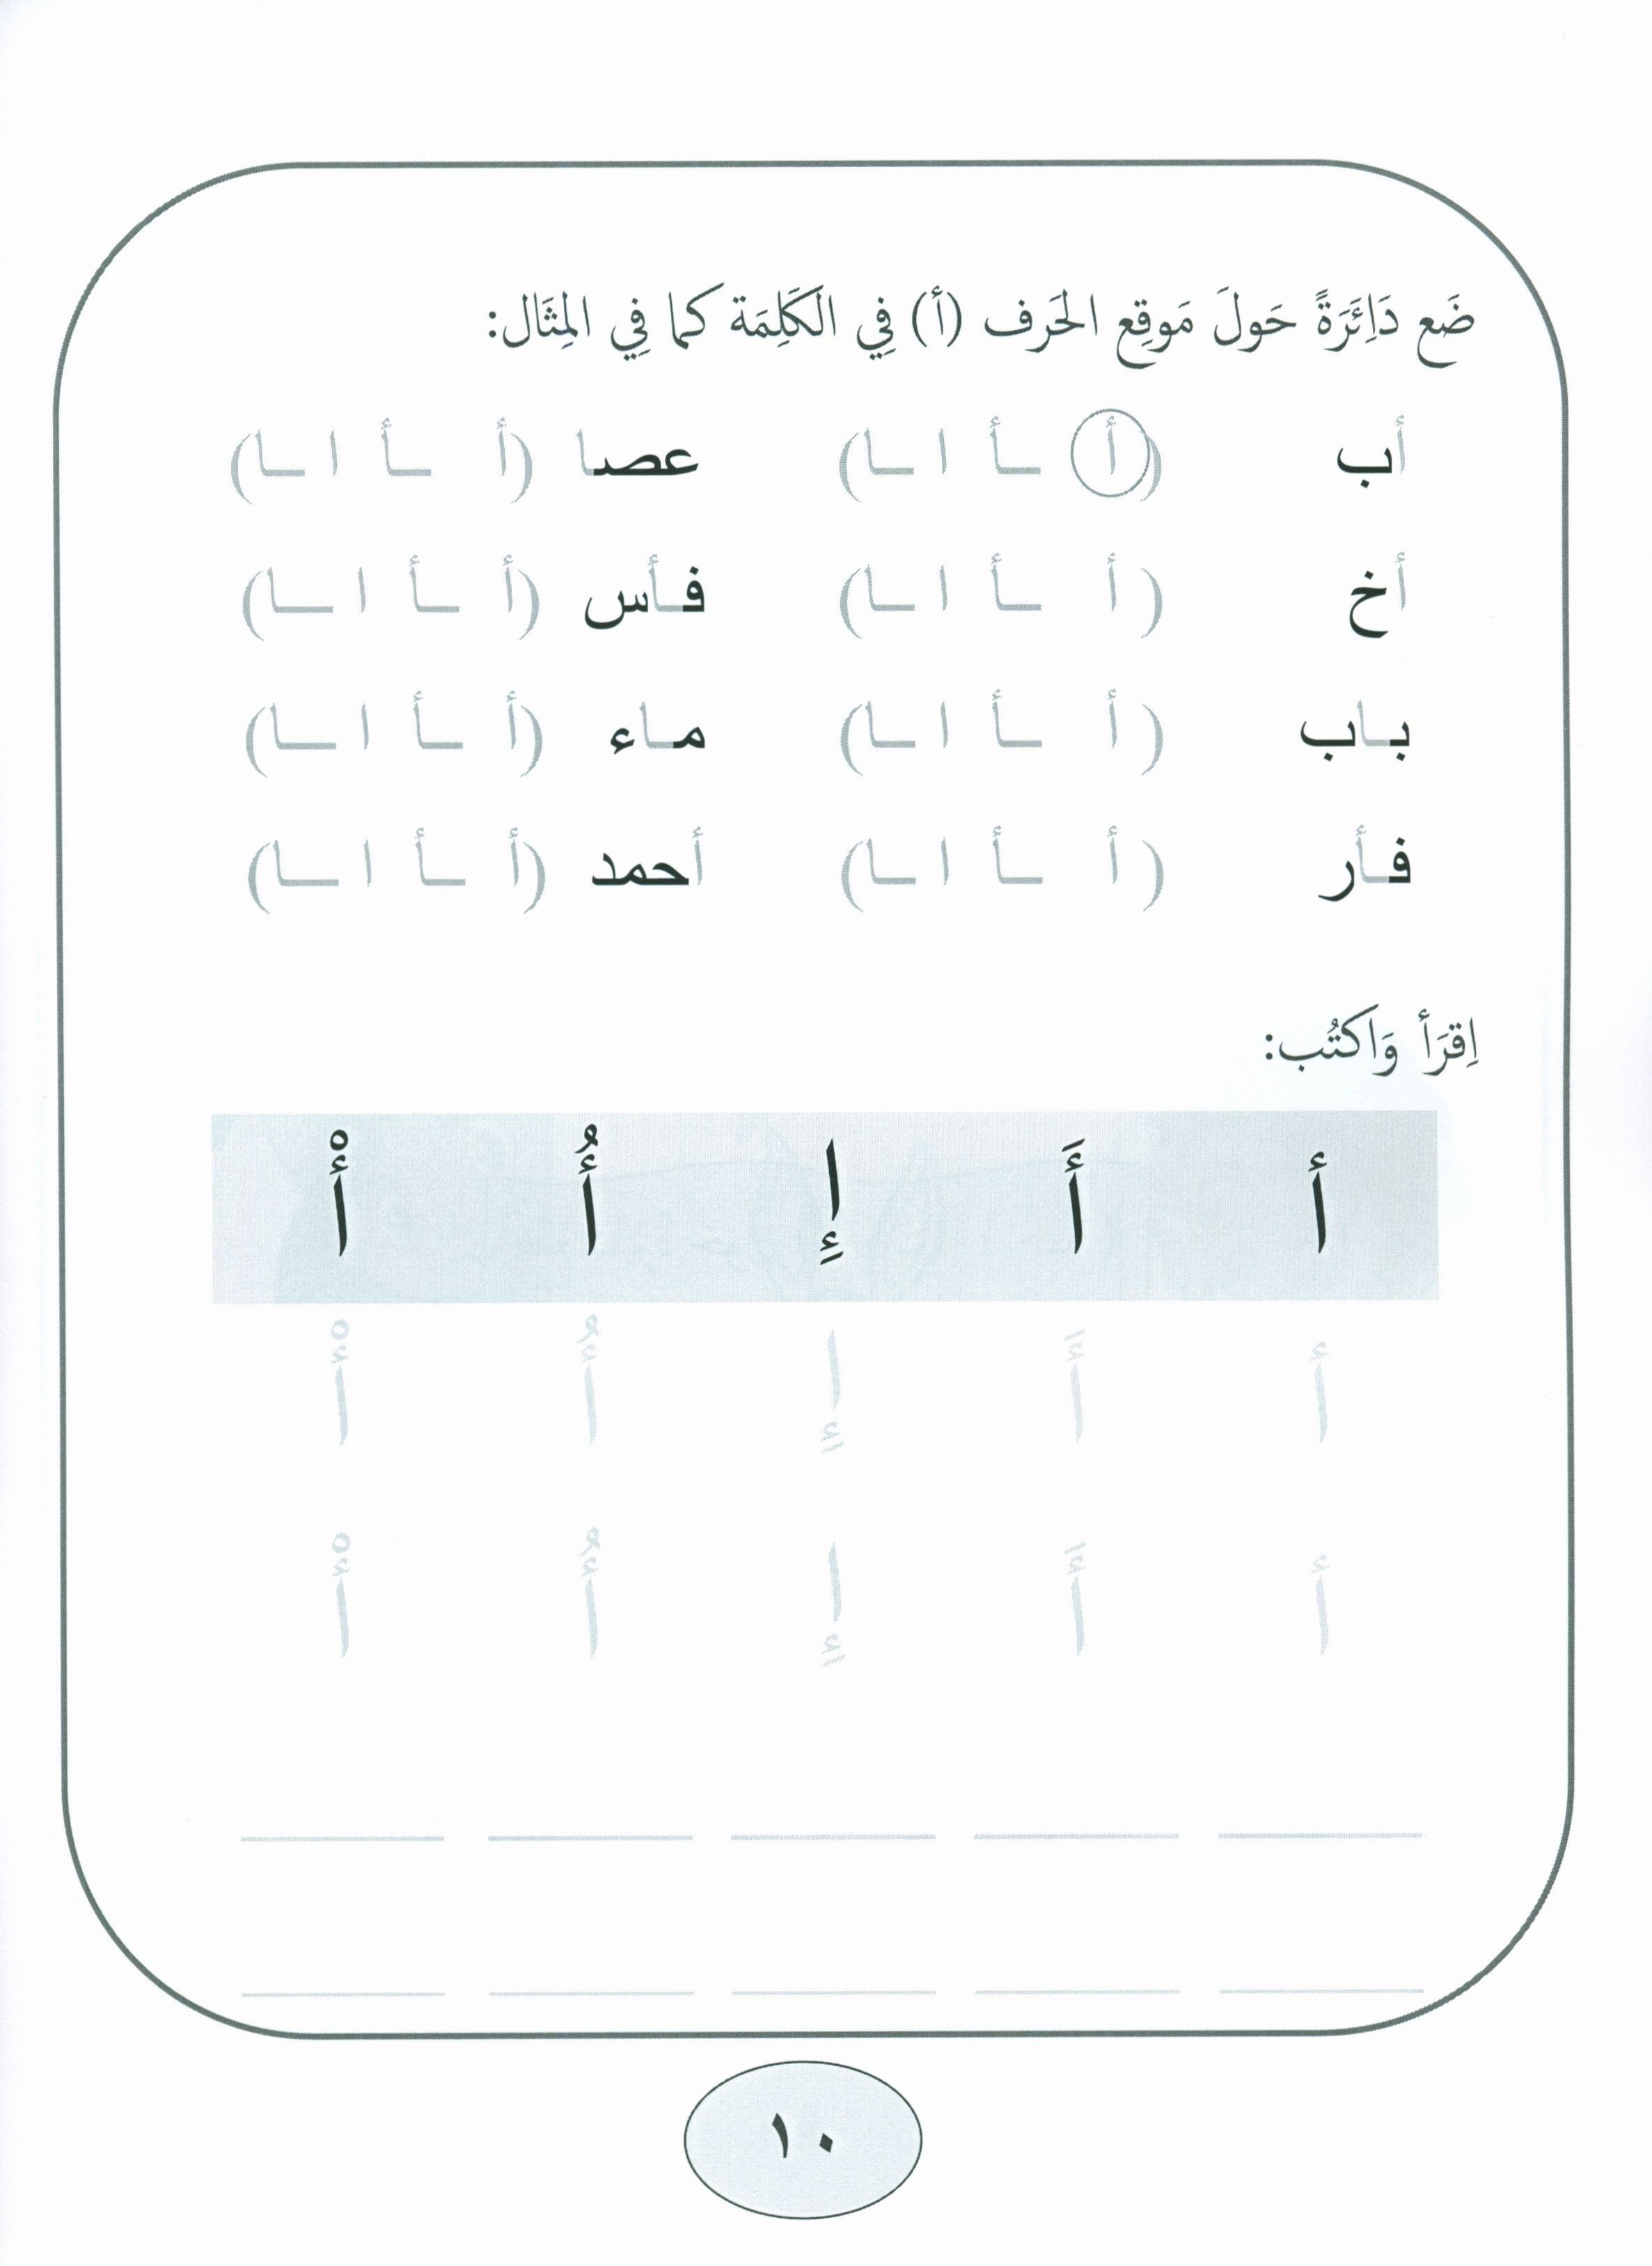 ضَع دَائِرَةً حَولَ مَوقِع الحَرف (أ) فِي الكَلِمَة كما فِي المِثَال:
أب (أ ـأ ا ـا) عصا (أ ـأ ا ـا)
أخ (أ ـأ ا ـا) فأس (أ ـأ ا ـا)
باب (أ ـأ ا ـا) ماء (أ ـأ ا ـا)
فأر (أ ـأ ا ـا) أحمد (أ ـأ ا ـا)
اِقرَأ وَاكتُب:
أ أَ إِ أُ أْ
أ أَ إِ أُ أْ
أ أَ إِ أُ أْ
١٠